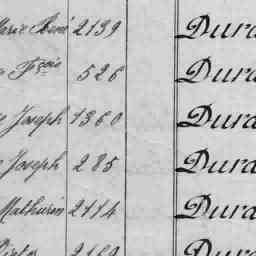 Marie René 2139 Dura
Fçois 526 Dura
Joseph 1360 Dura
Joseph 285 Dura
Mathurin 2114 Dura
Victor 2169 Dura